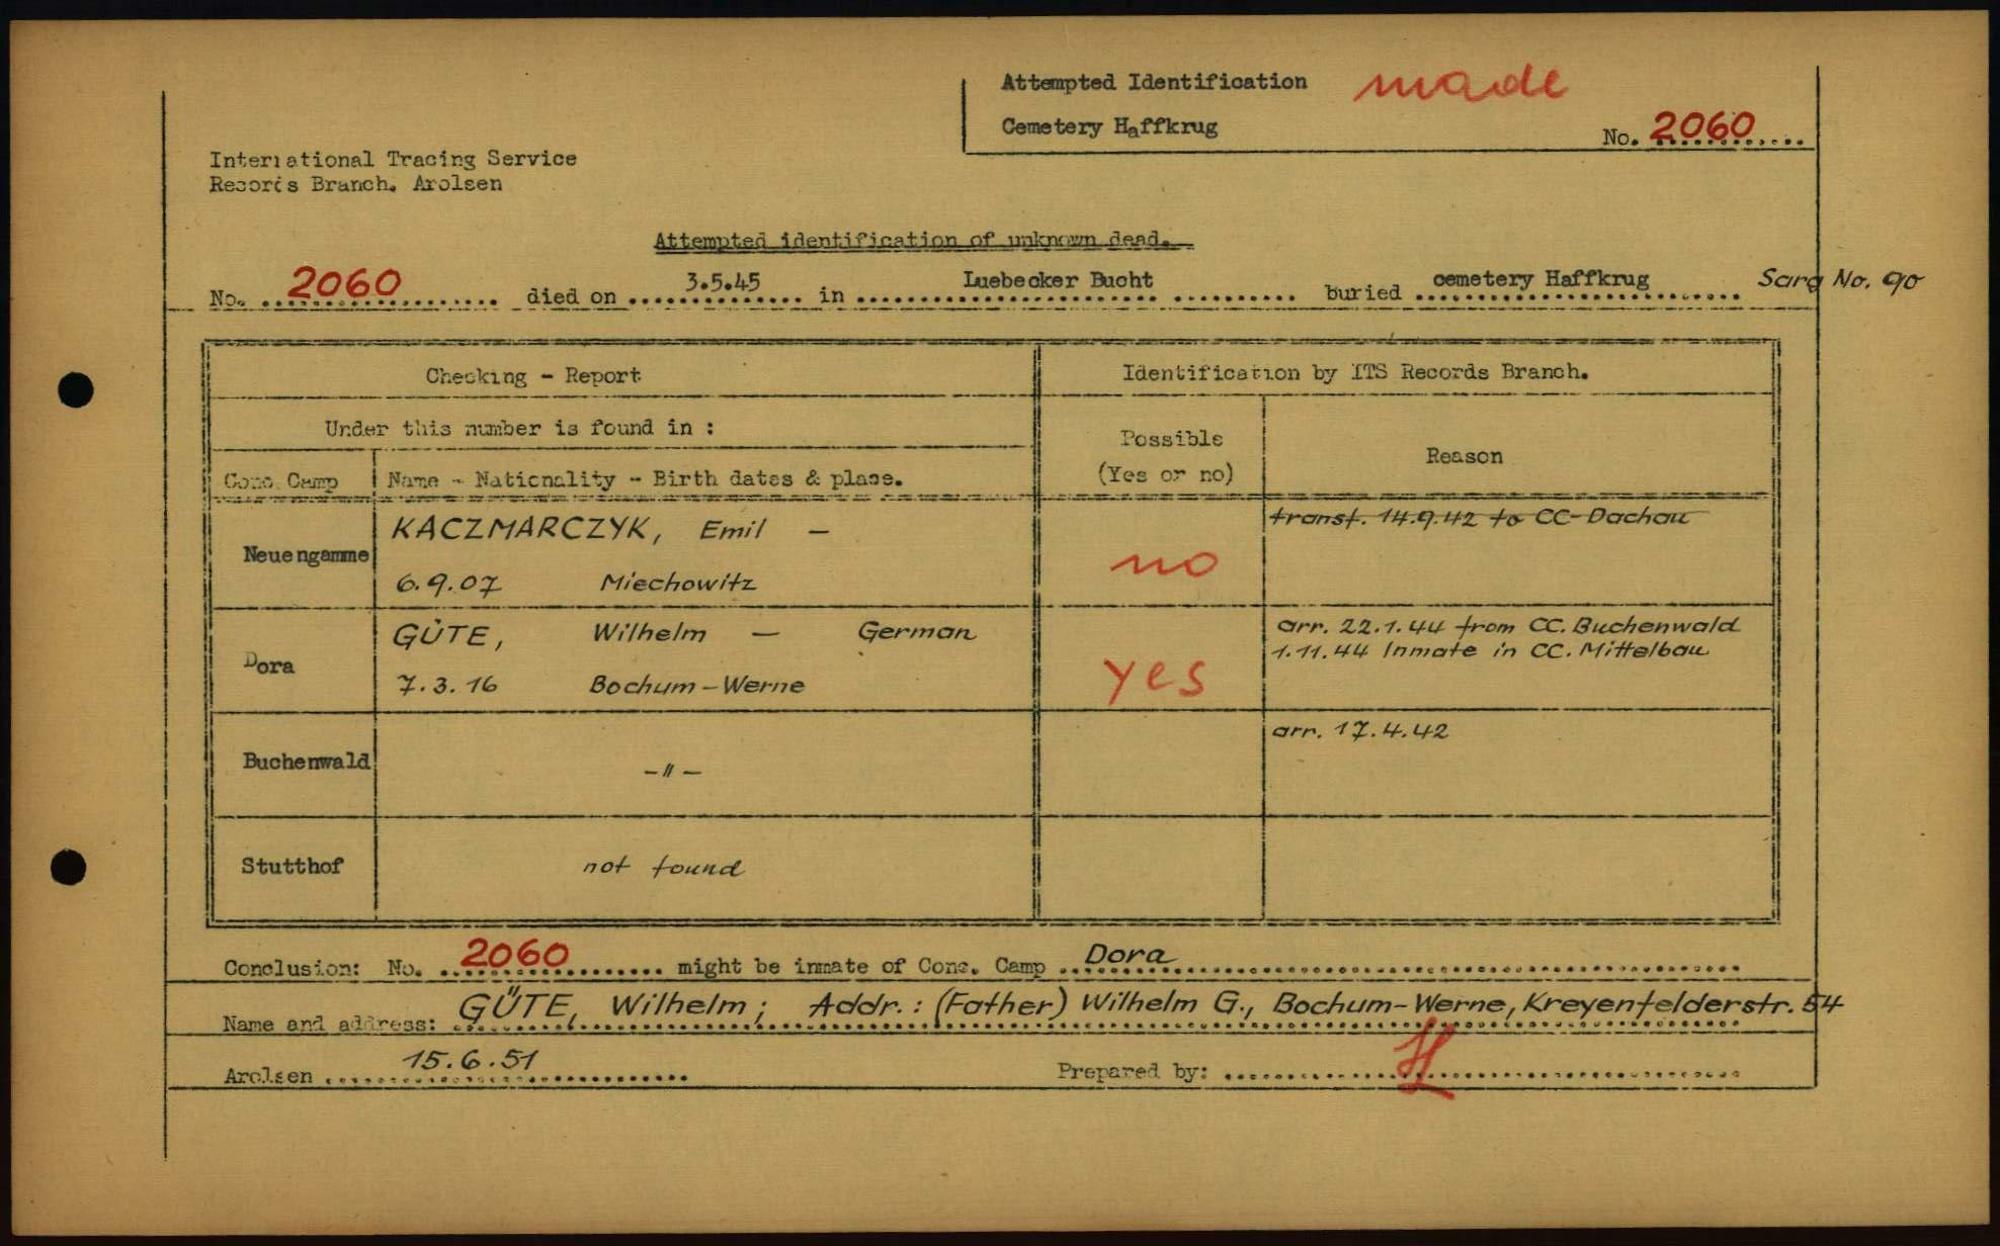 Attempted Identification made
Cemetery Haffkrug
No. 2060
International Tracing Service
Records Branch. Arolsen
Attempted identification of unknown dead.
No. 2060 died on 3.5.45 in Luebecker Bucht buried cemetery Haffkrug Sarg No. 90
Checking - Report
Identification by ITS Records Branch.
Under this number is found in :
Possible
(Yes or no)
Reason
Conc. Camp
Name - Nationality - Birth dates & place.
Neuengamme
KACZMARCZYK, Emil —
6.9.07 Miechowitz
no
transf. 14.9.42 to CC-Dachau
Dora
GÜTE, Wilhelm — German
7.3.16 Bochum-Werne
yes
arr. 22.1.44 from CC. Buchenwald
1.11.44 Inmate in CC. Mittelbau
Buchenwald
-"-
arr. 17.4.42
Stutthof
not found
Conclusion: No. 2060 might be inmate of Conc. Camp Dora
Name and address: GÜTE, Wilhelm; Addr.: (Father) Wilhelm G., Bochum-Werne, Kreyenfelderstr. 54
Arolsen 15.6.51
Prepared by: